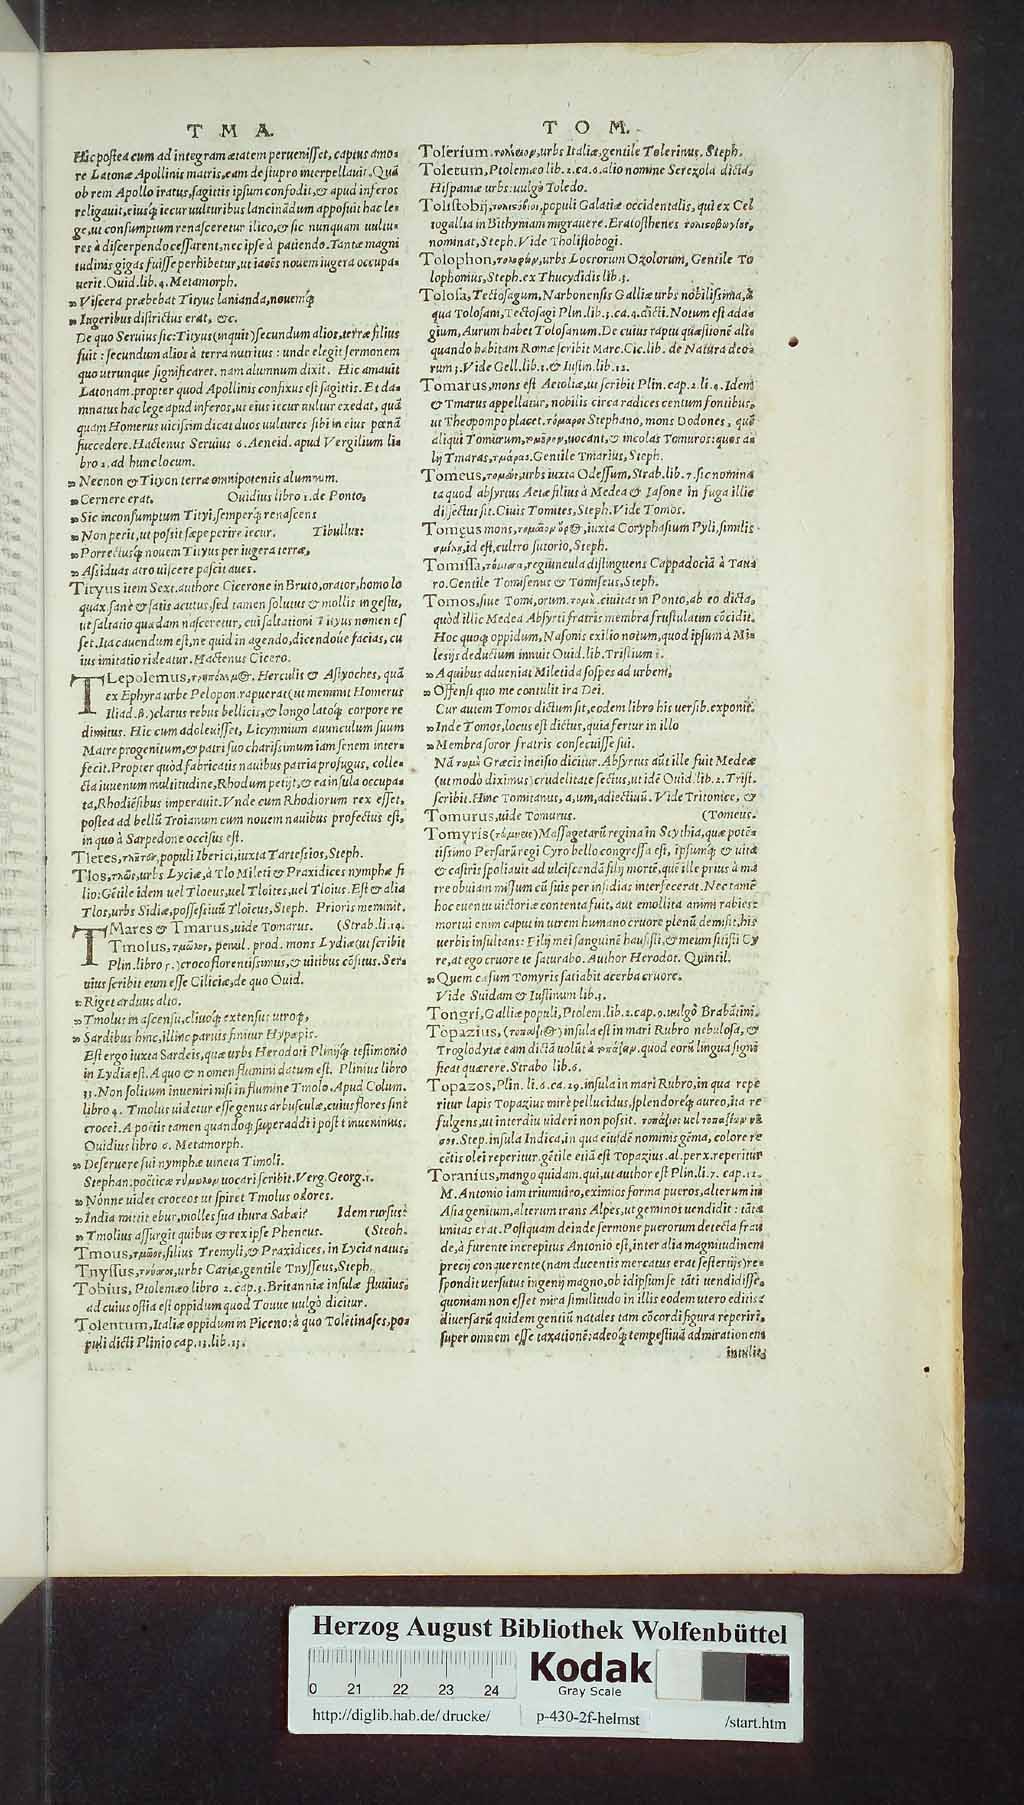 T M A.
Hic postea cum ad integram ætatem peruenisset, captus amo-
re Latonæ Apollinis matris, eam de stupro interpellauit. Quā
ob rem Apollo iratus, sagittis ipsum confodit, & apud inferos
religauit, eiusq́ iecur uulturibus lancinādum apposuit hac le-
ge, ut consumptum renasceretur ilico, & sic nunquam uultu-
res à discerpendo cessarent, nec ipse à patiendo. Tantæ magni
tudinis gigas fuisse perhibetur, ut iacēs nouem iugera occupa-
uerit. Ouid. lib. 4. Metamorph.
Viscera præbebat Tityus lanianda, nouemq́
Iugeribus districtus erat, &c.
De quo Seruius sic: Tityus (inquit) secundum alios, terræ filius
fuit: secundum alios à terra nutritus: unde elegit sermonem
quo utrunque significaret. nam alumnum dixit. Hic amauit
Latonam. propter quod Apollinis confixus est sagittis. Et da-
mnatus hac lege apud inferos, ut eius iecur uultur exedat, quā
quam Homerus uicissim dicat duos uultures sibi in eius pœnā
succedere. Hactenus Seruius 6. Aeneid. apud Vergilium li-
bro 2. ad hunc locum.
Necnon & Tityon terræ omnipotentis alumnum.
Cernere erat. Ouidius libro 1. de Ponto.
Sic inconsumptum Tityi, semperq́ renascens
Non perit, ut possit sæpe perire iecur. Tibullus:
Porrectusq́ nouem Tityus per iugera terræ,
Assiduas atro uiscere pascit aues.
Tityus item Sext. authore Cicerone in Bruto, orator, homo lo
quax sanè & satis acutus, sed tamen solutus & mollis in gestu,
ut saltatio quædam nasceretur, cui saltationi Tityus nomen es
set. Ita cauendum est, ne quid in agendo, dicendóue facias, cu
ius imitatio rideatur. Hactenus Cicero.
TLepolemus, Herculis & Astyoches, quā
ex Ephyra urbe Pelopon. rapuerat (ut meminit Homerus
Iliad. β.) clarus rebus bellicis, & longo latoq́ corpore re
dimitus. Hic cum adoleuisset, Licymnium auunculum suum
Matre progenitum, & patri suo charissimum iam senem inter-
fecit. Propter quòd fabricatis nauibus patria profugus, colle-
cta iuuenum multitudine, Rhodum petijt, & ea insula occupa-
ta, Rhodiēsibus imperauit. Vnde cum Rhodiorum rex esset,
postea ad bellū Troianum cum nouem nauibus profectus est,
in quo à Sarpedone occisus est.
Tletes, populi Iberici, iuxta Tartessios, Steph.
Tlos, τλῶς, urbs Lyciæ, à Tlo Mileti & Praxidices nymphæ fi
lio: Gētile idem uel Tloeus, uel Tloites, uel Tloius. Est & alia
Tlos, urbs Sidiæ, possessiuū Tloicus, Steph. Prioris meminit.
TMares & Tmarus, uide Tomarus. (Strab. li. 14.
Tmolus, τμῶλος, penul. prod. mons Lydiæ (ut scribit
Plin. libro 5.) croco florentissimus, & uitibus cōsitus. Ser-
uius scribit eum esse Ciliciæ, de quo Ouid.
Riget arduus alto.
Tmolus in ascensu, cliuoq́ extensus utroq́,
Sardibus hinc, illinc paruis finitur Hypæpis.
Est ergo iuxta Sardeis, quæ urbs Herodoti Plinijq́ testimonio
in Lydia est. A quo & nomen flumini datum est. Plinius libro
33. Non solitum inueniri nisi in flumine Tmolo. Apud Colum.
libro 4. Tmolus uidetur esse genus arbusculæ, cuius flores sint
crocei. A poëtis tamen quandoq́ superaddi i post t inuenimus.
Ouidius libro 6. Metamorph.
Deseruere sui nymphæ uineta Timoli.
Stephan: poëticæ τύμωλον uocari scribit. Verg. Georg. 1.
Nónne uides croceos ut spiret Tmolus odores.
India mittit ebur, molles sua thura Sabæi? Idem rursus:
Tmolius assurgit quibus & rex ipse Phaneus. (Steph.
Tmous, filius Tremyli, & Praxidices, in Lycia natus.
Tnyssus, urbs Cariæ, gentile Tnysseus, Steph.
Tobius, Ptolemæo libro 2. cap. 3. Britanniæ insulæ fluuius,
ad cuius ostia est oppidum quod Touue uulgò dicitur.
Tolentum, Italiæ oppidum in Piceno: à quo Toletinases, po-
puli dicti Plinio cap. 13. lib. 13.
T O M.
Tolerium, urbs Italiæ, gentile Tolerinus. Steph.
Toletum, Ptolemæo lib. 2. ca. 6. alio nomine Serezola dicta,
Hispaniæ urbs: uulgò Toledo.
Tolistobij, populi Galatiæ occidentalis, qui ex Cel
togallia in Bithyniam migrauere. Eratosthenes
nominat, Steph. Vide Tholistobogi.
Tolophon, urbs Locrorum Ozolorum, Gentile To
lophonius, Steph. ex Thucydidis lib. 3.
Tolosa, Tectosagum, Narbonensis Galliæ urbs nobilissima, à
qua Tolosam, Tectosagi Plin. lib. 3. ca. 4. dicti. Notum est ada-
gium, Aurum habet Tolosanum. De cuius raptu quæstionē ali-
quando habitam Romæ scribit Marc. Cic. lib. de Natura deo-
rum 3. Vide Gell. lib. 3. & Iustin. lib. 12.
Tomarus, mons est Aetoliæ, ut scribit Plin. cap. 2. li. 4. Idem
& Tmarus appellatur, nobilis circa radices centum fontibus,
ut Theopompo placet. τόμαρος Stephano, mons Dodones, quē
aliqui Tomurum, uocant, & incolas Tomuros: quos a-
lij Tmaras, τμάρας. Gentile Tmarius, Steph.
Tomeus, urbs iuxta Odessum, Strab. lib. 7. sic nomina
ta quod absyrtus Aetæ filius à Medea & Iasone in fuga illic
dissectus sit. Ciuis Tomites, Steph. Vide Tomos.
Tomeus mons, iuxta Coryphasium Pyli, similis
id est, cultro sutorio, Steph.
Tomissa, regiuncula distinguens Cappadociā à Tau
ro. Gentile Tomisenus & Tomiseus, Steph.
Tomos, siue Tomi, orum. ciuitas in Ponto, ab eo dicta,
quòd illic Medea Absyrti fratris membra frustulatim cōcidit.
Hoc quoq́ oppidum, Nasonis exilio notum, quod ipsum à Mi-
lesijs deductum innuit Ouid. lib. Tristium 1.
A quibus adueniat Miletida sospes ad urbem,
Offensi quo me contulit ira Dei.
Cur autem Tomos dictum sit, eodem libro his uersib. exponit.
Inde Tomos, locus est dictus, quia fertur in illo
Membra soror fratris consecuisse sui.
Nā τομὴ Græcis incisio dicitur. Absyrtus aūt ille fuit Medeæ
(ut modò diximus) crudelitate sectus, ut idē Ouid. lib. 2. Trist.
scribit. Hinc Tomitanus, a, um, adiectiuū. Vide Tritoniæ, &
Tomurus, uide Tomurus. (Tomeus.
Tomyris (τόμυρις) Massagetarū regina in Scythia, quæ potē-
tissimo Persarū regi Cyro bello congressa est, ipsumq́ & uita
& castris spoliauit ad ulciscendā filij mortē, quē ille prius à ma
tre obuiam missum cū suis per insidias interfecerat. Nec tamē
hoc euentu uictoriæ contenta fuit, aut emollita animi rabies:
mortui enim caput in utrem humano cruore plenū demisit, his
uerbis insultans: Filij mei sanguinē hausisti, & meum sitisti Cy
re, at ego cruore te saturabo. Author Herodot. Quintil.
Quem casum Tomyris satiabit acerba cruore.
Vide Suidam & Iustinum lib. 1.
Tongri, Galliæ populi, Ptolem. lib. 2. cap. 9. uulgò Brabātini.
Topazius, insula est in mari Rubro nebulosa, &
Troglodytæ eam dictā uolūt à quod eorū lingua signi
ficat quærere. Strabo lib. 6.
Topazos, Plin. li. 6. ca. 29. insula in mari Rubro, in qua repe
ritur lapis Topazius mirè pellucidus, splendoreq́ aureo, ita re
fulgens, ut interdiu uideri non possit. τοπάζιος uel
Step. insula Indica, in qua eiusdē nominis gēma, colore re
cētis olei reperitur. gētile etiā est Topazius. al. per x. reperitur
Toranius, mango quidam, qui, ut author est Plin. li. 7. cap. 12.
M. Antonio iam triumuiro, eximios forma pueros, alterum in
Asia genitum, alterum trans Alpes, ut geminos uendidit: tāta
unitas erat. Postquam deinde sermone puerorum detecta frau
de, à furente increpitus Antonio est, inter alia magnitudinem
precij conquerente (nam ducentis mercatus erat sestertijs) re-
spondit uersutus ingenij mango, ob id ipsum se tāti uendidisse,
quoniam non esset mira similitudo in illis eodem utero editis:
diuersarū quidem gentiū natales tam cōcordi figura reperiri,
super omnem esse taxationē: adeoq́ tempestiuā admirationem
intulit,
Herzog August Bibliothek Wolfenbüttel
0 21 22 23 24
Kodak
Gray Scale
http://diglib.hab.de/drucke/ p-430-2f-helmst /start.htm